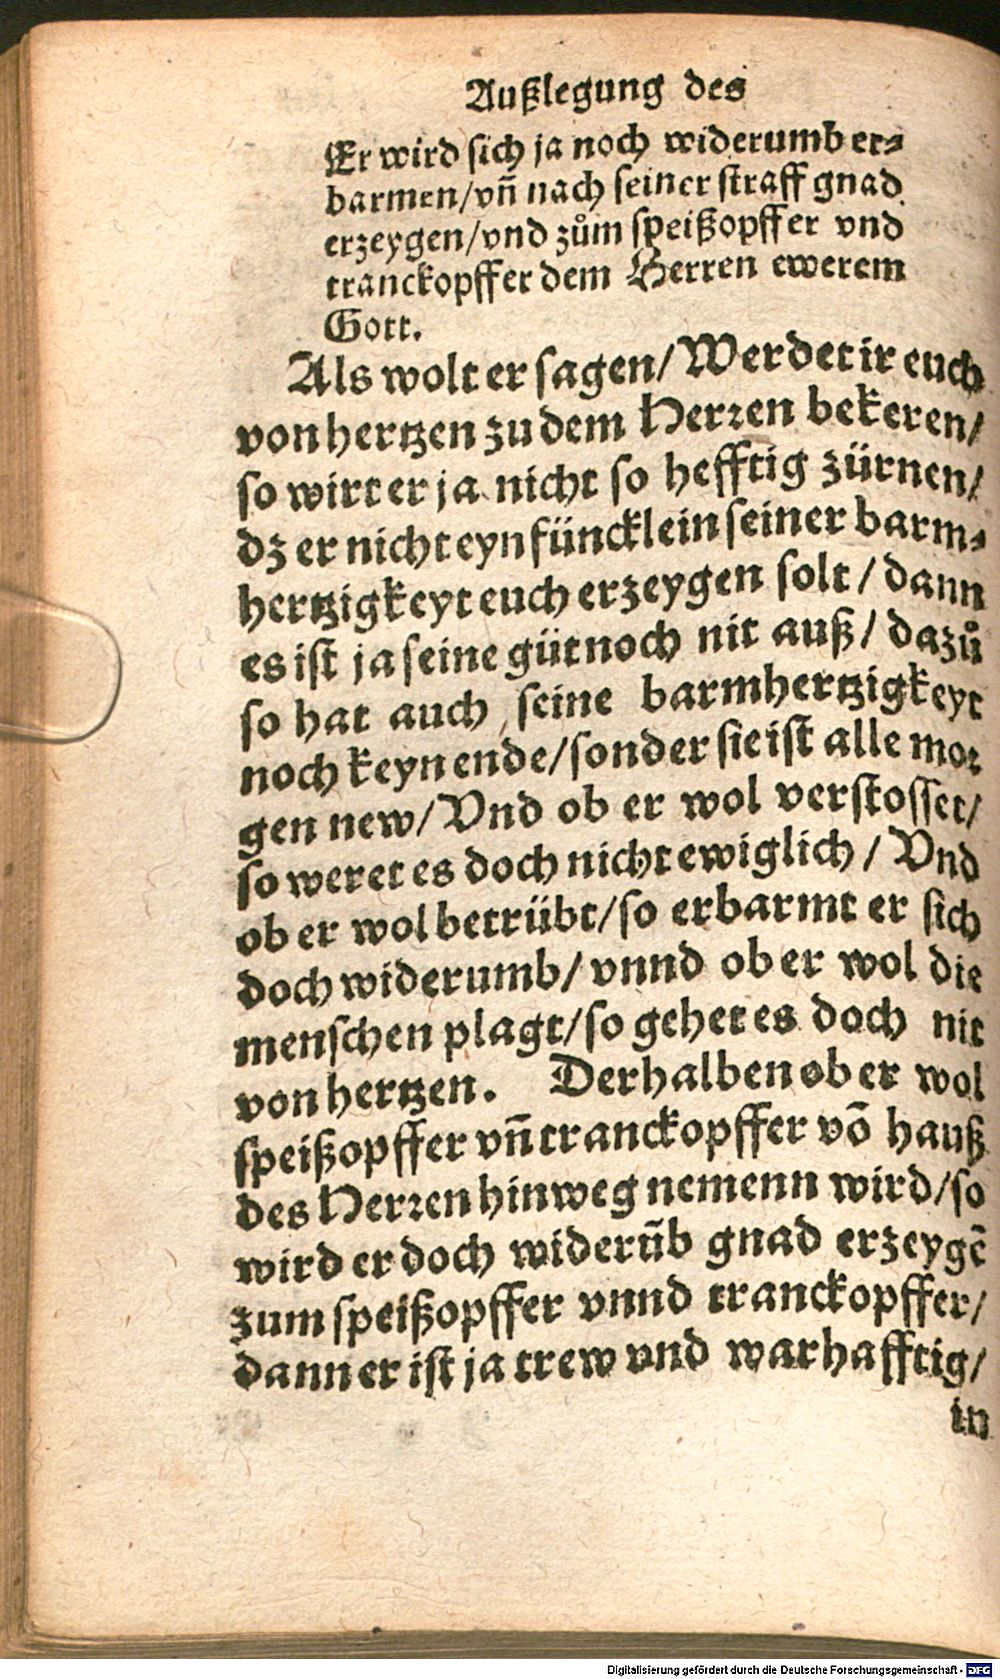 Außlegung des
Er wird sich ja noch widerumb er⸗
barmen/vñ nach seiner straff gnad
erzeygen/vnd zům speißopffer vnd
tranckopffer dem Herren ewerem
Gott.
Als wolt er sagen/Werdet ir euch
von hertzen zu dem Herren bekeren/
so wirt er ja nicht so hefftig zürnen/
dz er nicht eyn füncklein seiner barm⸗
hertzigkeyt euch erzeygen solt/dann
es ist ja seine güt noch nit auß/dazů
so hat auch seine barmhertzigkeyt
noch keyn ende/sonder sie ist alle mor
gen new/Vnd ob er wol verstosset/
so weret es doch nicht ewiglich/Vnd
ob er wol betrübt/so erbarmt er sich
doch widerumb/vnnd ob er wol die
menschen plagt/so gehet es doch nit
von hertzen. Derhalben ob er wol
speißopffer vñ tranckopffer võ hauß
des Herren hinweg nemenn wird/so
wird er doch widerũb gnad erzeygẽ
zum speißopffer vnnd tranckopffer/
dann er ist ja trew vnd warhafftig/
in
Digitalisierung gefördert durch die Deutsche Forschungsgemeinschaft - DFG